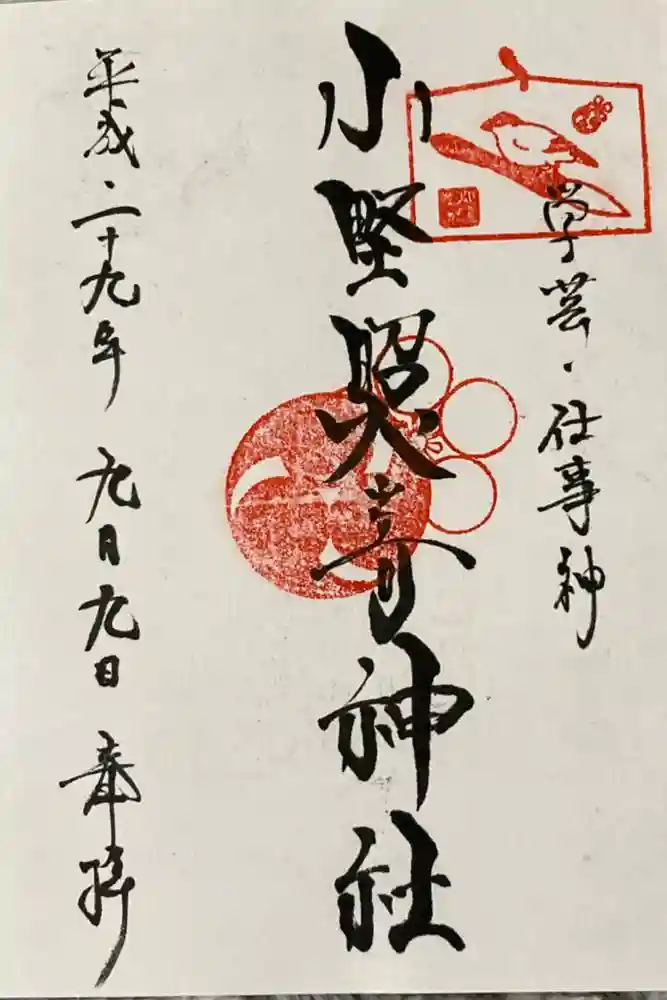 学芸・仕事神
小野照崎神社
平成二十九年 九月九日 奉拝